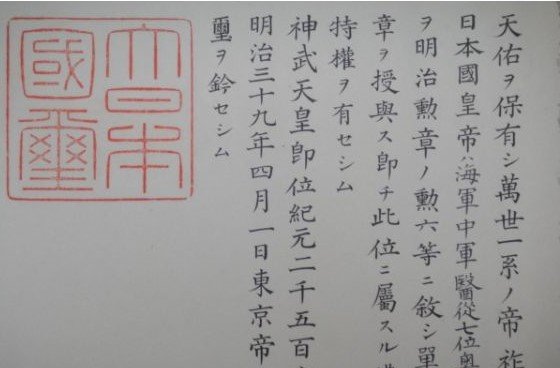 天佑ヲ保有シ萬世一系ノ帝祚
日本國皇帝ハ海軍中軍醫從七位奥
ヲ明治勲章ノ勲六等ニ敘シ單
章ヲ授與ス卽チ此位ニ屬スル
特權ヲ有セシム
神武天皇卽位紀元二千五百
明治三十九年四月一日東京帝
璽ヲ鈐セシム
大日本
國璽